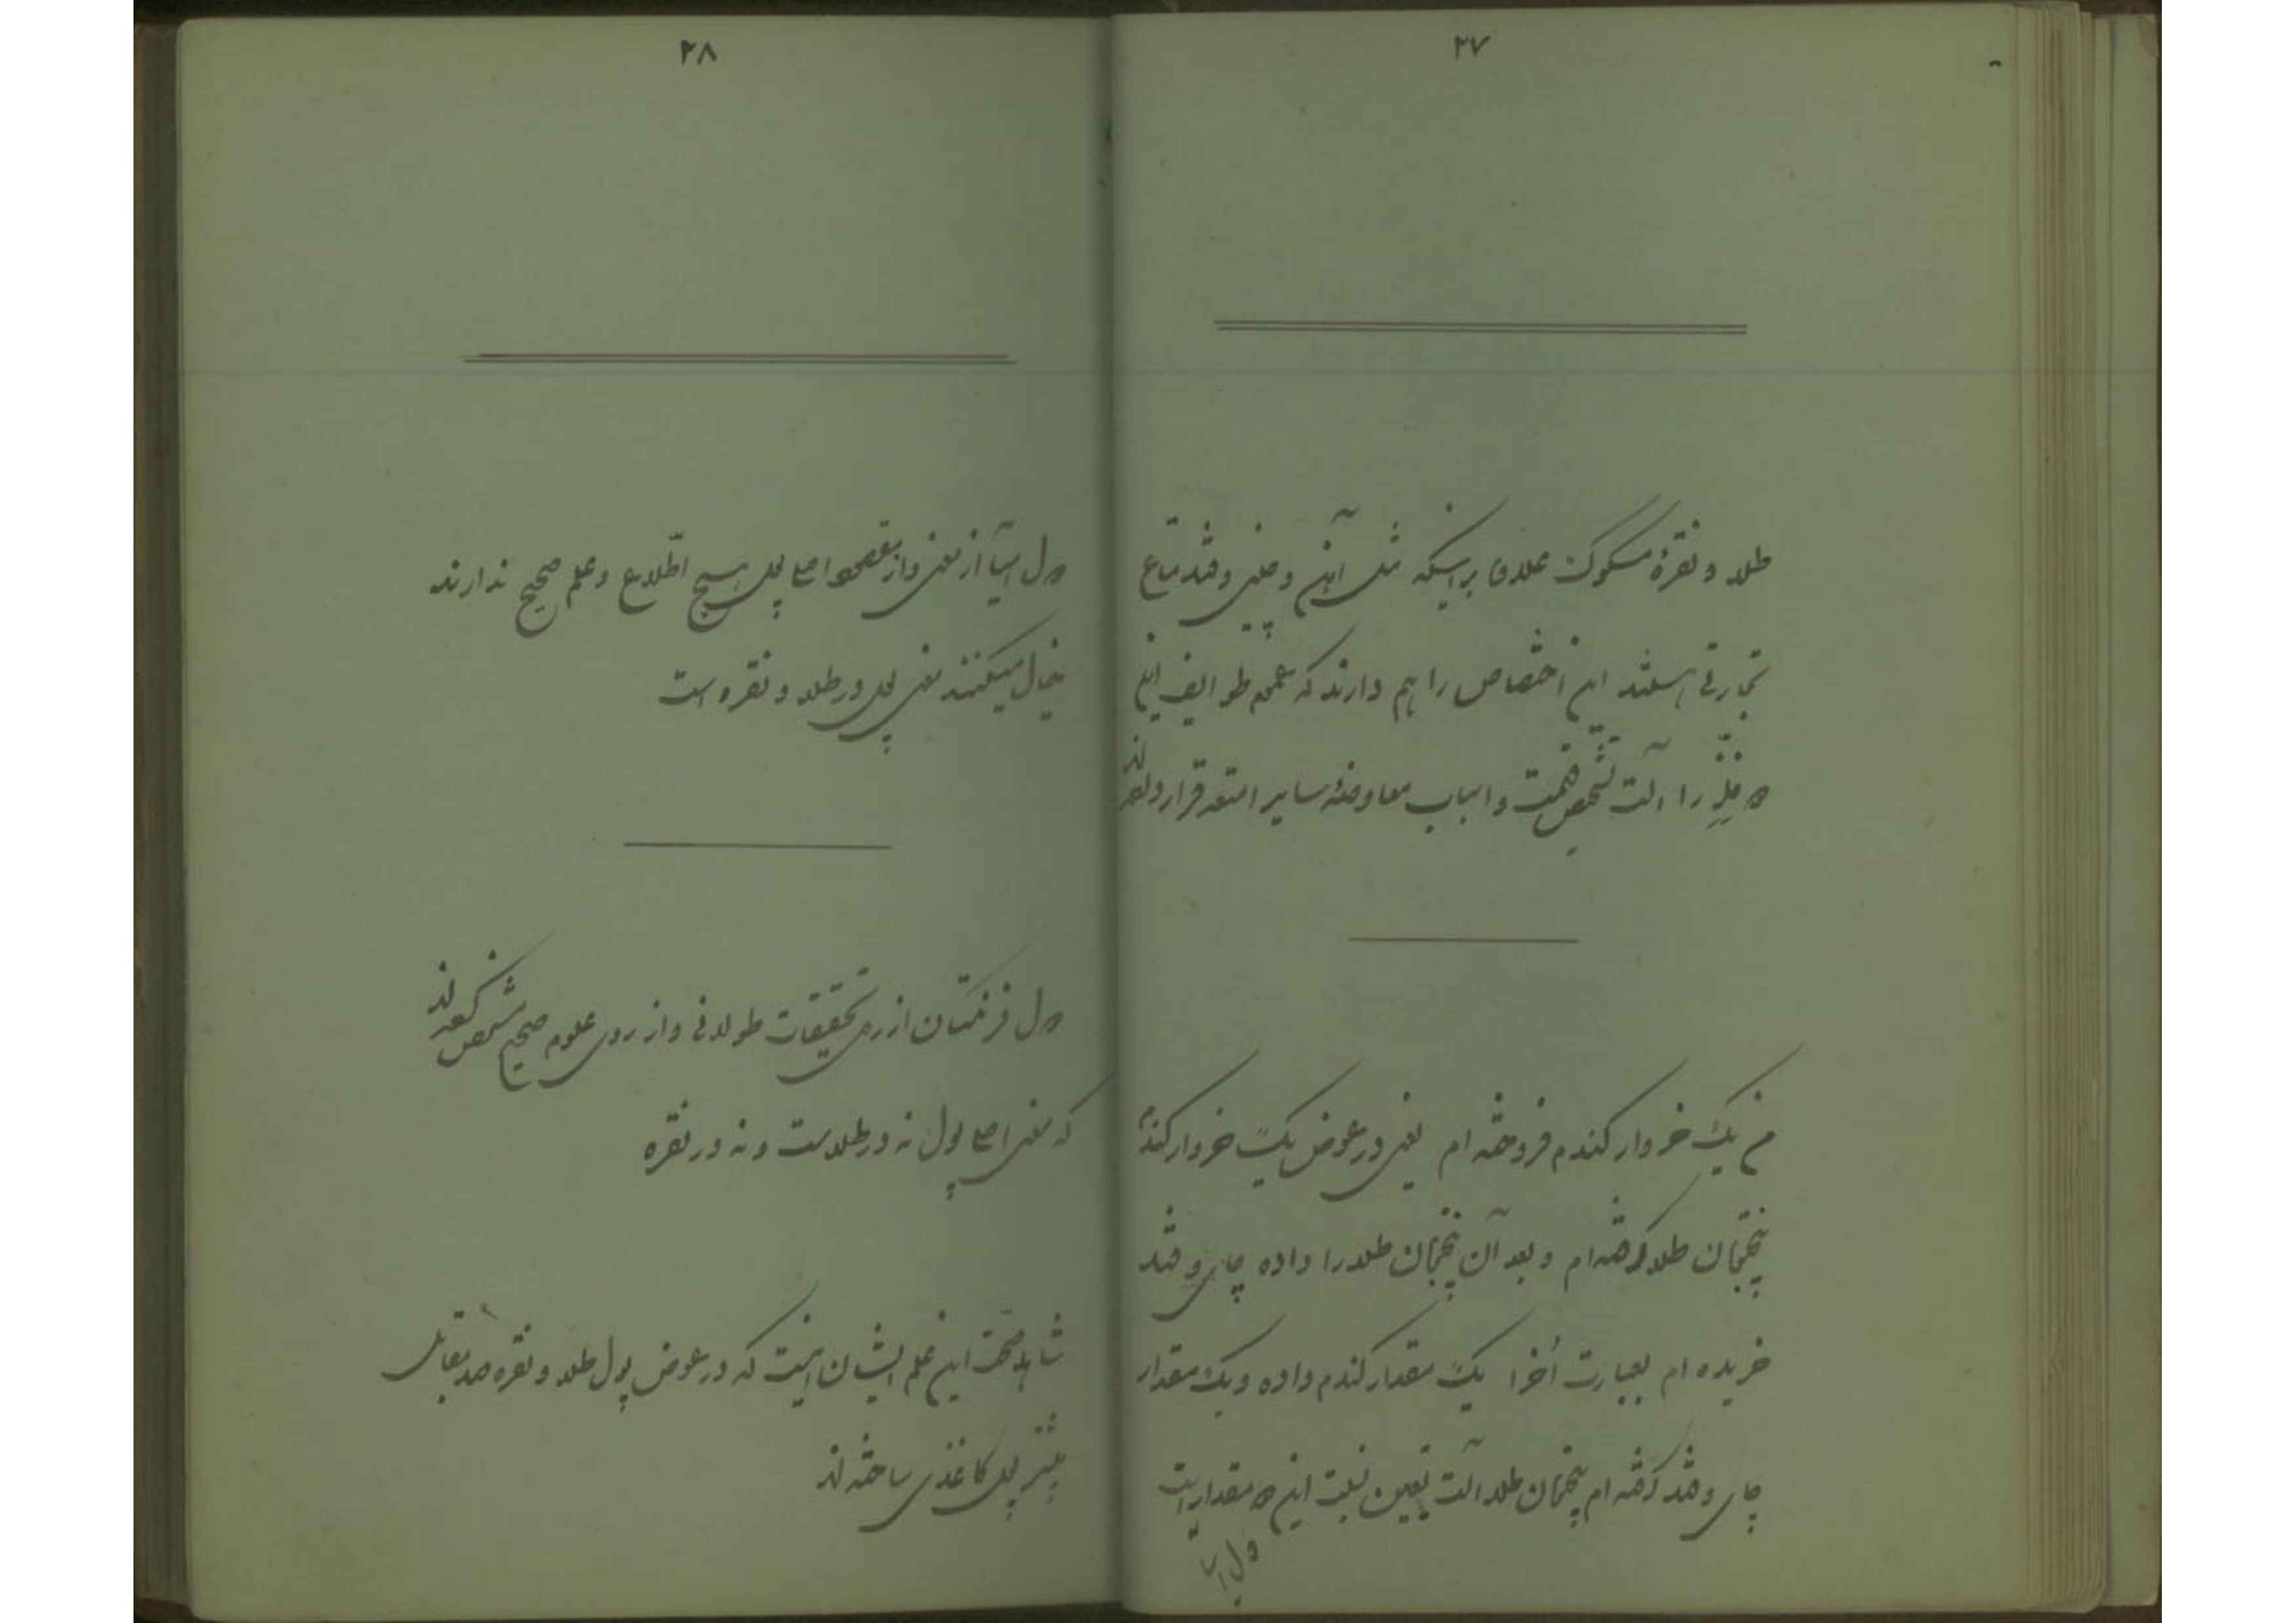 ۲۷
طلا و نقرهٔ مسکوک علاوه براینکه مثل آهن و چینی و قند متاع
تجارتی هستند این اختصاص را هم دارند که عموم طوایف این
دو فلز را آلت تشخیص قیمت و اسباب معاوضهٔ سایر امتعه قرار داده‌اند
من یک خروار کندم فروخته ام یعنی در عوض یک خروار کندم
پنجتمان طلا گرفته ام و بعد آن پنجتمان طلا را داده چای و قند
خریده ام بعبارت اُخرا یک مقدار کندم داده و یک مقدار
چای و قند گرفته ام پنجتمان طلا آلت تعیین نسبت این دو مقدار است
دول آسیا
۲۸
دول آسیا از معنی و از مقصود اصلی پول هیچ اطّلاع و علم صحیح ندارند
خیال میکنند معنی پول در طلا و نقره است
دول فرنکستان از روی تحقیقات طولانی و از روی علوم صحیح مشخص کرده‌اند
که معنی اصلی پول نه در طلاست و نه در نقره
شاهد صحّت این علم ایشان اینست که در عوض پول طلا و نقره صد مقابل
بیشتر پول کاغذی ساخته اند